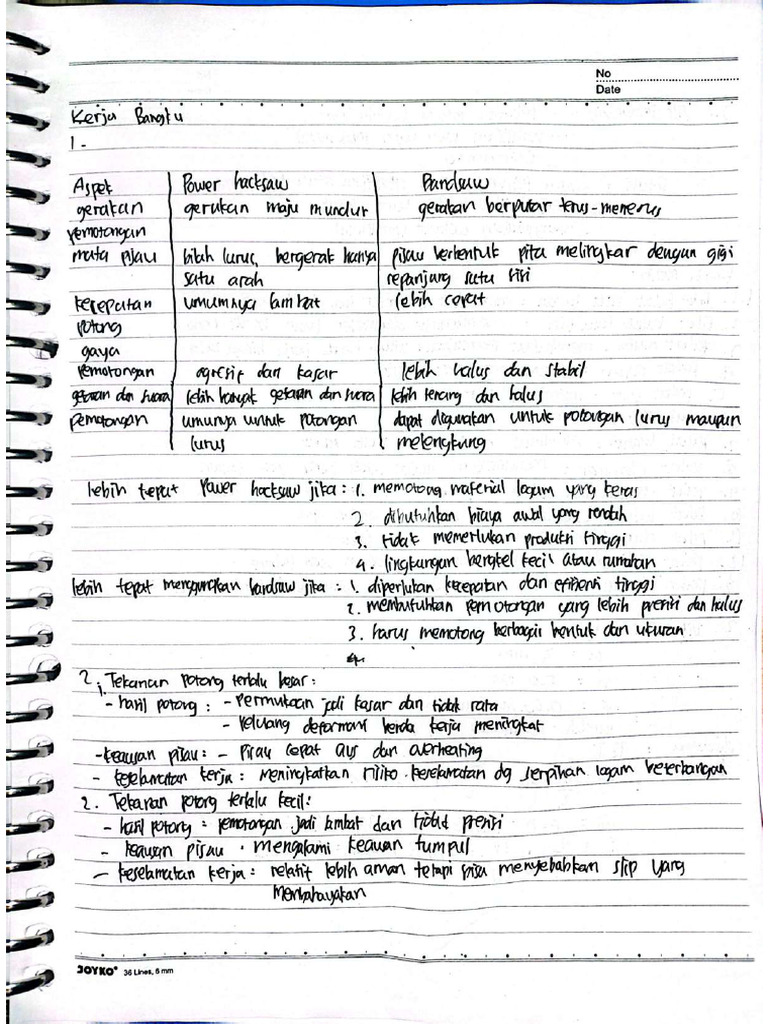 No
Date
Kerja Bangku
1.
Aspek Power hacksaw Bandsaw
gerakan gerakan maju mundur gerakan berputar terus-menerus
pemotongan
mata pisau bilah lurus, bergerak hanya pisau berbentuk pita melingkar dengan gigi
satu arah sepanjang satu sisi
kecepatan umumnya lambat lebih cepat
potong
gaya
pemotongan agresif dan kasar lebih halus dan stabil
getaran dan suara lebih banyak getaran dan suara lebih tenang dan halus
pemotongan umunya untuk potongan dapat digunakan untuk potongan lurus maupun
lurus melengkung
lebih tepat Power hacksaw jika : 1. memotong material logam yang keras
2. dibutuhkan biaya awal yang rendah
3. tidak memerlukan produksi tinggi
4. lingkungan bengkel kecil atau rumahan
lebih tepat menggunakan bandsaw jika : 1. diperlukan kecepatan dan efisiensi tinggi
2. membutuhkan pemotongan yang lebih presisi dan halus
3. harus memotong berbagai bentuk dan ukuran
4.
2. 1. Tekanan potong terlalu besar :
- hasil potong : - Permukaan jadi kasar dan tidak rata
- Peluang deformasi benda kerja meningkat
- keausan pisau : - Pisau cepat aus dan overheating
- keselamatan kerja : meningkatkan risiko keselamatan dg serpihan logam beterbangan
2. Tekanan potong terlalu kecil :
- hasil potong : pemotongan jadi lambat dan tidak presisi
- keausan pisau . mengalami keausan tumpul
- keselamatan kerja : relatif lebih aman tetapi bisa menyebabkan slip yang
membahayakan
JOYKO 36 Lines, 6 mm